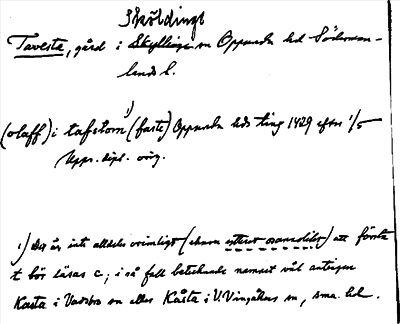 Sköldinge
Taveste, gård i Skyllinge sn Oppunda hd Söderman-
lands l.
(olaff) i tafstom¹⁾ (faste) Oppunda hds ting 1429 efter 1/5
Upps. dipl. orig.
1) Det är inte alldeles orimligt (ehuru ytterst osannolikt) att första
t bör läsas c; i så fall betecknade namnet väl antingen
Kasta i Vadsbro sn eller Kåsta i V. Vingåkers sn, sma. hd.